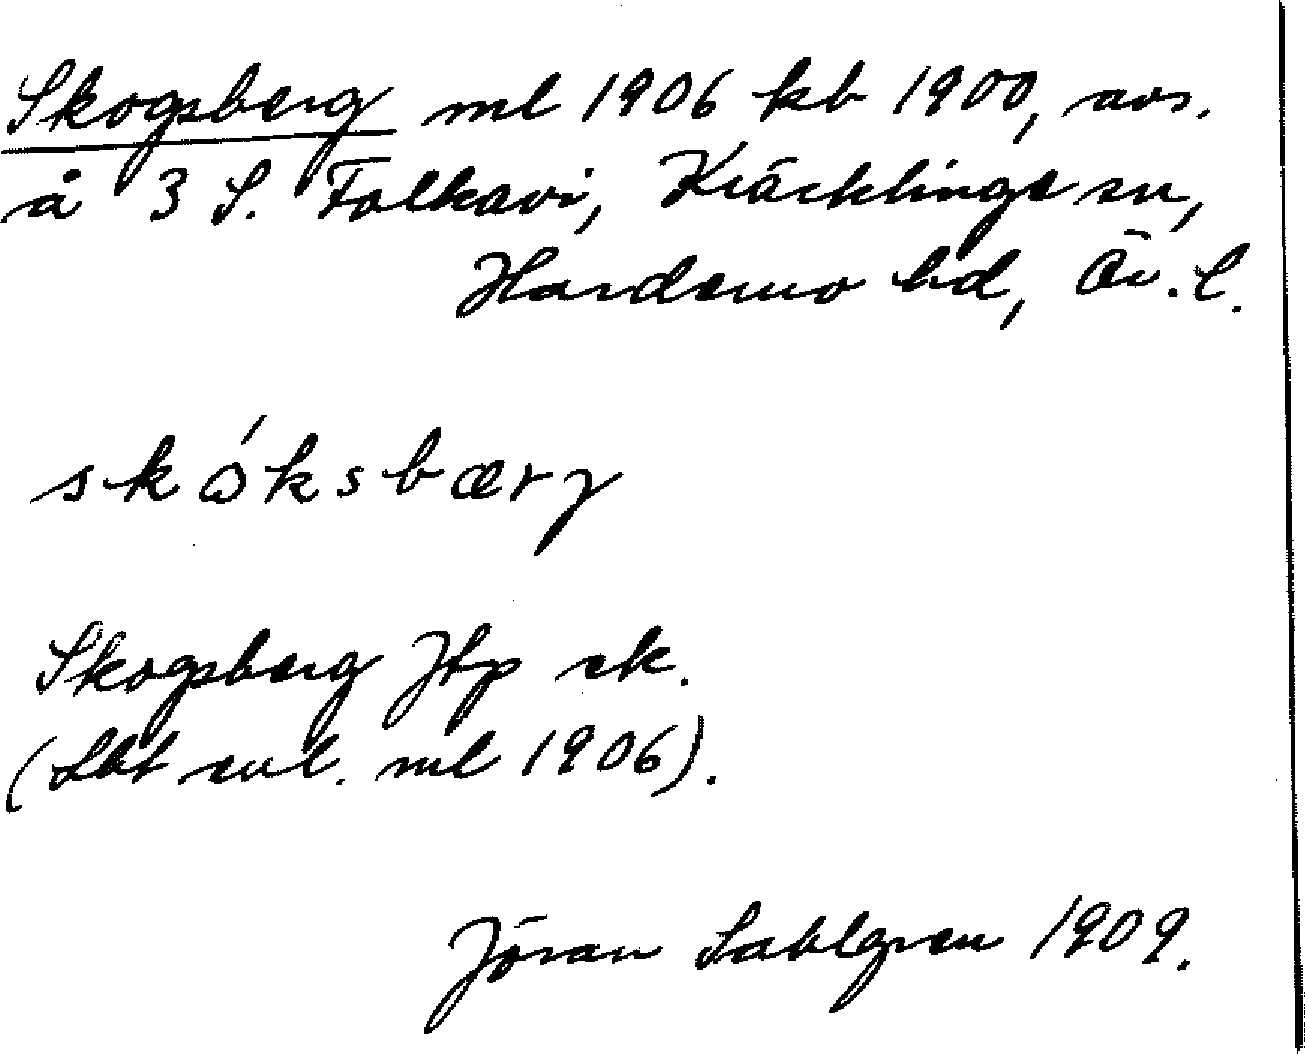 Skogsberg ml 1906 kb 1900, avs.
å 3 S. Folkavi, Kräcklinge sn,
Hardemo hd, Ör. l.
skóksbærγ
Skogsberg Jtp ek.
(Lht enl. ml 1906).
Jöran Sahlgren 1909.